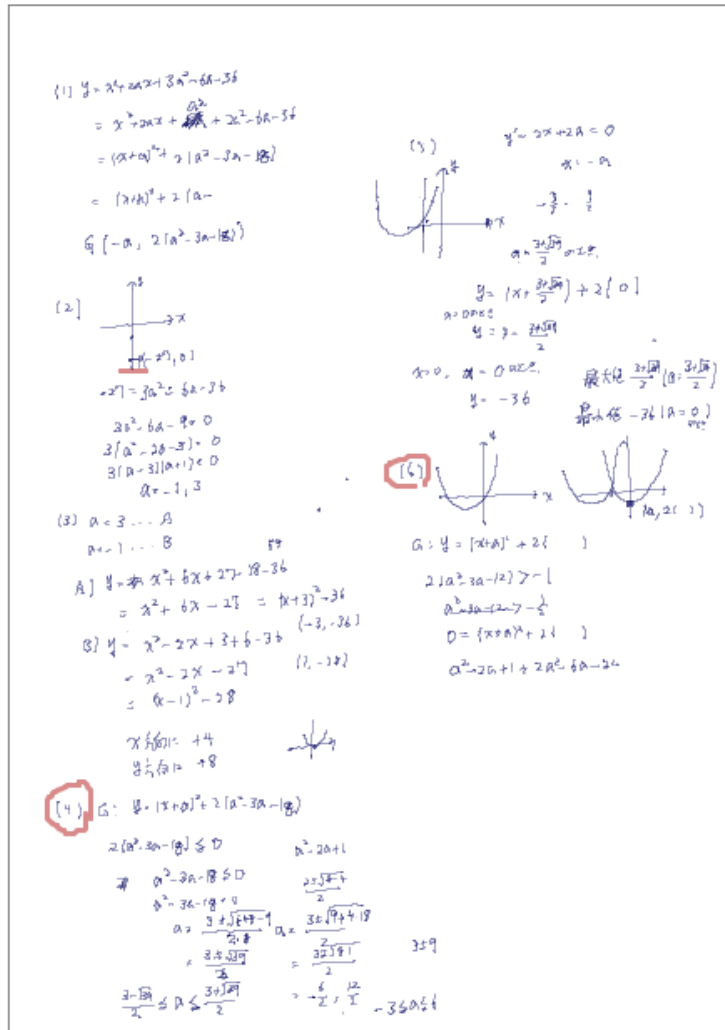 (1) y = x²+2ax+3a²-6a-36
= x²+2ax+a²+2a²-6a-36
= (x+a)²+2(a²-3a-18)
= (x+a)²+2(a-
G(-a, 2(a²-3a-18))
(2)
y
x
-27=3a²-6a-36
3a²-6a-9=0
3(a²-2a-3)=0
3(a-3)(a+1)=0
a=-1, 3
(3) a=3 ... A
a=-1 ... B
A) y= x²+6x+27-18-36
= x²+6x-27 = (x+3)²-36
(-3, -36)
B) y= x²-2x+3+6-36
= x²-2x-27
= (x-1)²-28
x方向に +4
y方向に +8
(4) G: y=(x+a)²+2(a²-3a-18)
2(a²-3a-18)≦0
a²-3a-18≦0
a²-3a-18=0
a²-2a+1
= 3±√39
3-√39/2 ≦ a ≦ 3+√39/2
a= 3±√9+4・18/2
= 3±√81/2
= -6/2, 12/2
3±9
-3≦a≦6
(5)
y
x
y'=2x+2a=0
x=-a
a=3+√39/2 のとき、
y=(x+3+√39/2)+2{0}
a=0のとき
x=0, a=0のとき、
y=-36
最大値 3+√39/2 (a=3+√39/2)
最小値 -36 (a=0)
(6)
y
x
G: y=(x+a)²+2( )
2(a²-3a-12)>-1
a²-3a-12>-1/2
0=(x+a)²+2( )
a²-2a+1+2a²-6a-24